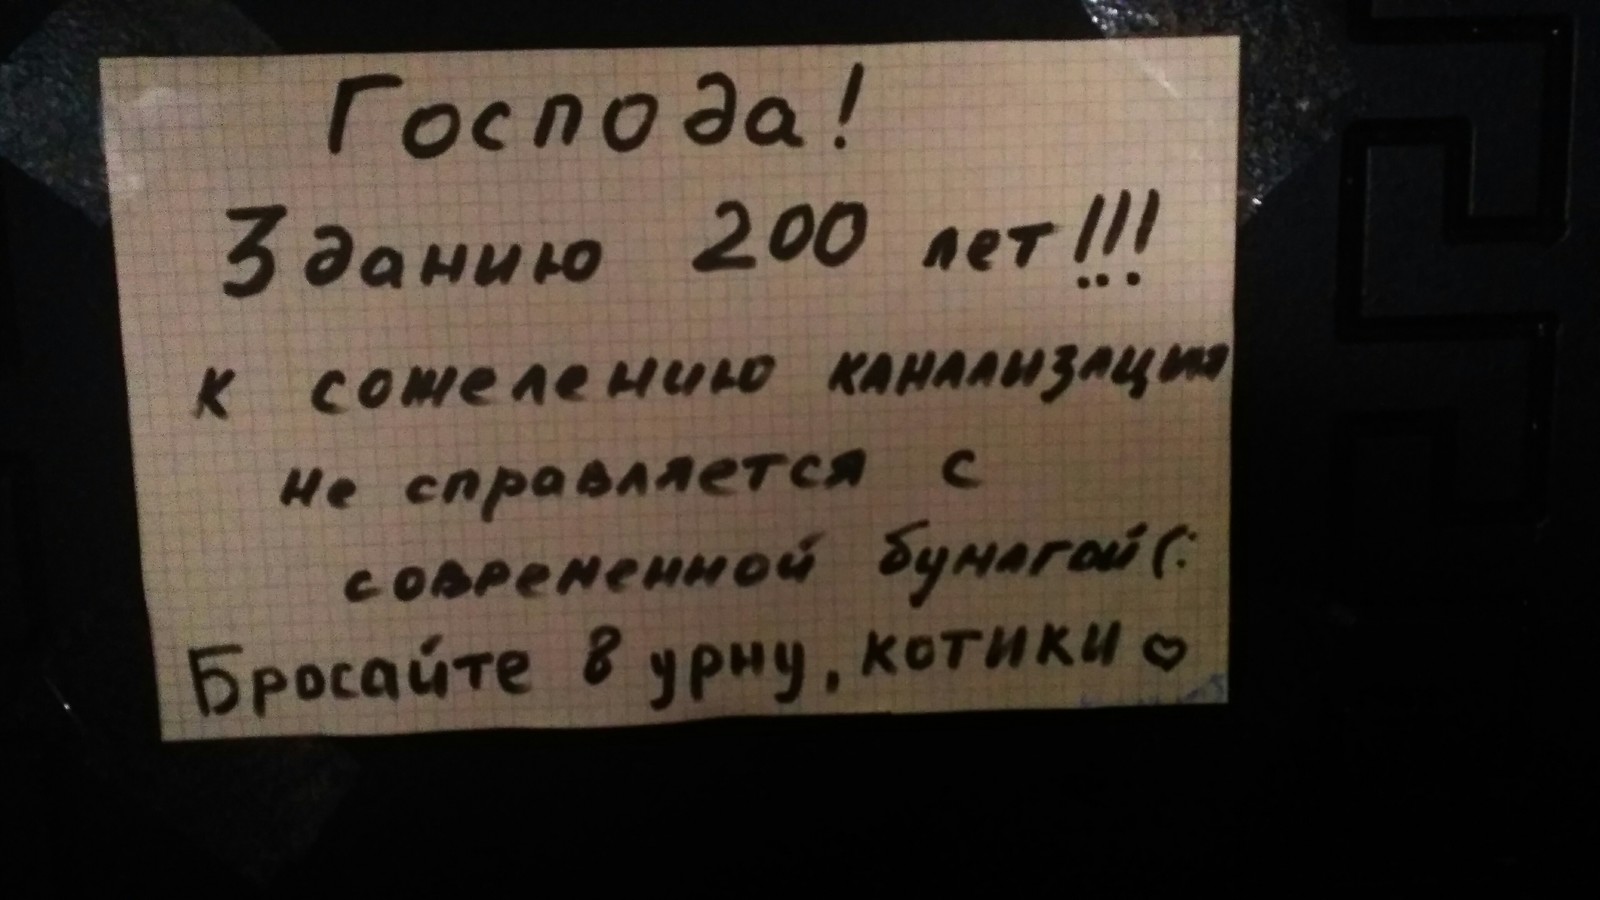 Господа!
Зданию 200 лет!!!
к сожелению канализация
не справляется с
современной бумагой(:
Бросайте в урну, котики ♡